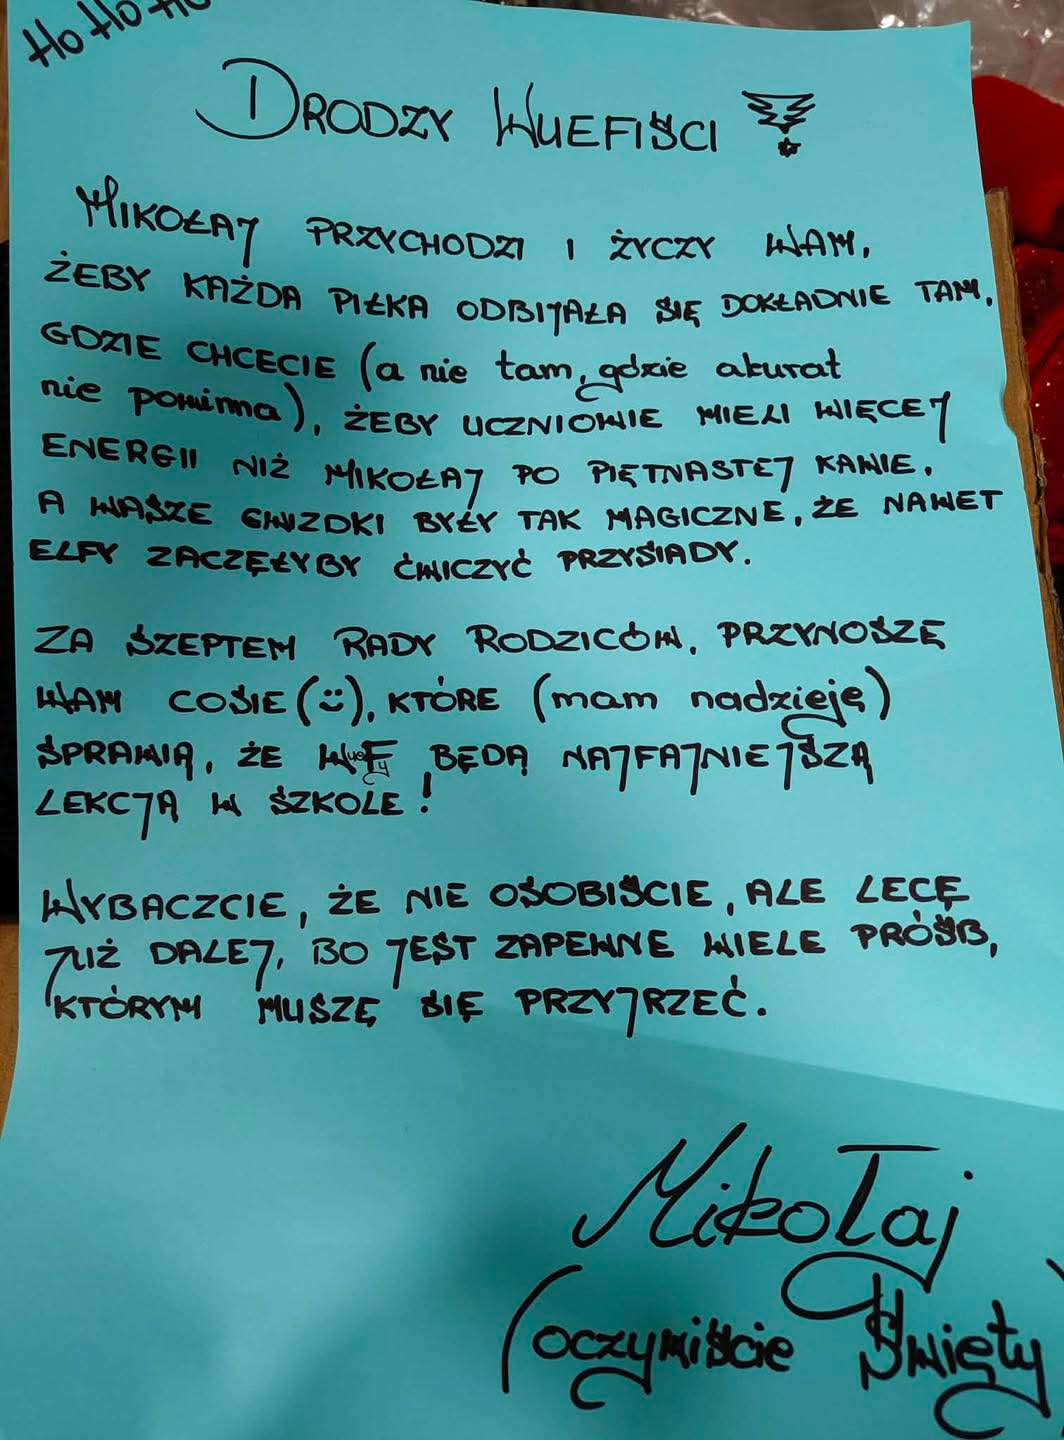 Ho Ho Ho
DRODZY WUEFIŚCI
MIKOŁAJ PRZYCHODZI I ŻYCZY WAM,
ŻEBY KAŻDA PIŁKA ODBIJAŁA SIĘ DOKŁADNIE TAM,
GDZIE CHCECIE (a nie tam, gdzie akurat
nie powinna), ŻEBY UCZNIOWIE MIELI WIĘCEJ
ENERGII NIŻ MIKOŁAJ PO PIĘTNASTEJ KAWIE,
A WASZE GWIZDKI BYŁY TAK MAGICZNE, ŻE NAWET
ELFY ZACZĘŁYBY ĆWICZYĆ PRZYSIADY.
ZA SZEPTEM RADY RODZICÓW, PRZYNOSZĘ
WAM COSIE (☺), KTÓRE (mam nadzieję)
SPRAWIĄ, ŻE BĘDĄ NAJFAJNIEJSZĄ
LEKCJĄ W SZKOLE!
WYBACZCIE, ŻE NIE OSOBIŚCIE, ALE LECĘ
JUŻ DALEJ, BO JEST ZAPEWNE WIELE PRÓŚB,
KTÓRYM MUSZĘ SIĘ PRZYJRZEĆ.
Mikołaj
(oczywiście Święty)